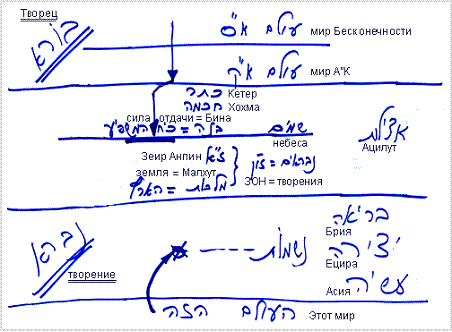 Творец
בורא
עולם א"ס мир Бесконечности
עולם א"ק мир А"К
כתר Кетер
חכמה Хохма
сила отдачи = Бина
בינה = כוח המשפיע
שמים
небеса
אצילות
Ацилут
Зеир Анпин ז"א
נבראים = זו"ן
земля = Малхут
ЗОН = творения
מלכות = הארץ
בריאה
Брия
נברא
נשמות
יצירה
Ецира
творение
עשיה
Асия
העולם הזה Этот мир